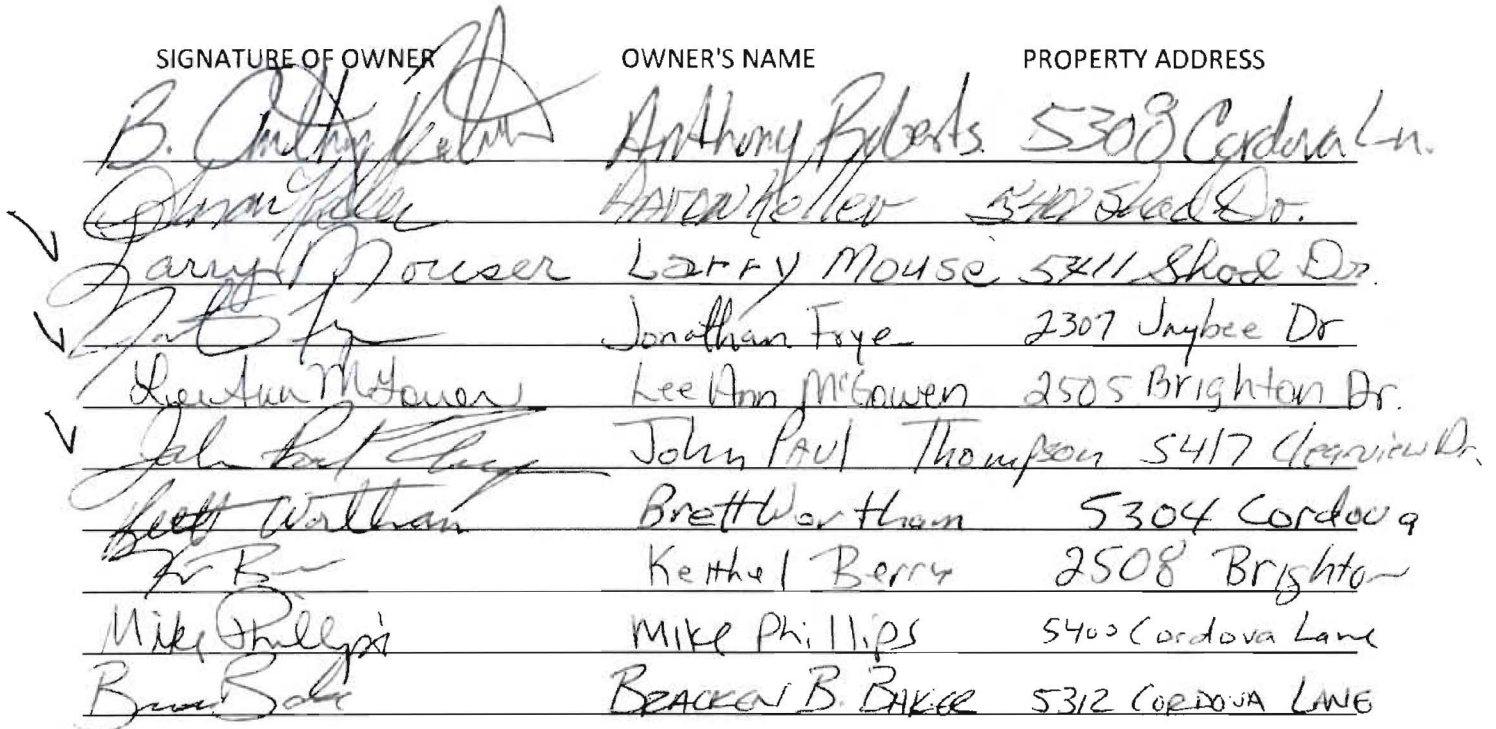 SIGNATURE OF OWNER OWNER'S NAME PROPERTY ADDRESS
B. Anthony Roberts Anthony Roberts. 5308 Cordova Ln.
Keller Shad Dr.
Larry Mouser Larry Mouse 5411 Shad Dr.
Jonathan Frye 2307 Jaybee Dr
LeeAnn McGowen LeeAnn McGowen 2505 Brighton Dr.
John Paul John PAUl Thompson 5417 Clearview Dr.
Brett Wortham Brett Wortham 5304 Cordova
Berry 2508 Brighton
Mike Phillips Mike Phillips 5400 Cordova Lane
BRACKEN B. BAKER 5312 CORDOVA LANE